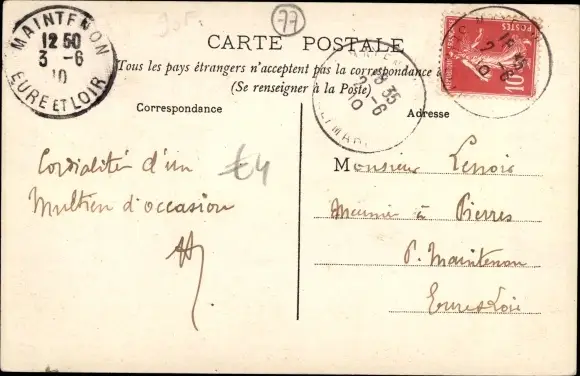 MAINTENON
12 50
3 -6
10
EURE ET LOIR
77
CARTE POSTALE
Tous les pays étrangers n'acceptent pas la correspondance a
(Se renseigner à la Poste)
Correspondance
Adresse
18 35
2 -6
10
18 35
2 -6
10
POSTES
10
Cordialité d'un
Multien d'occasion
£4
Monsieur Lenoir
Meunier à Pierres
P. Maintenon
Eure & Loir